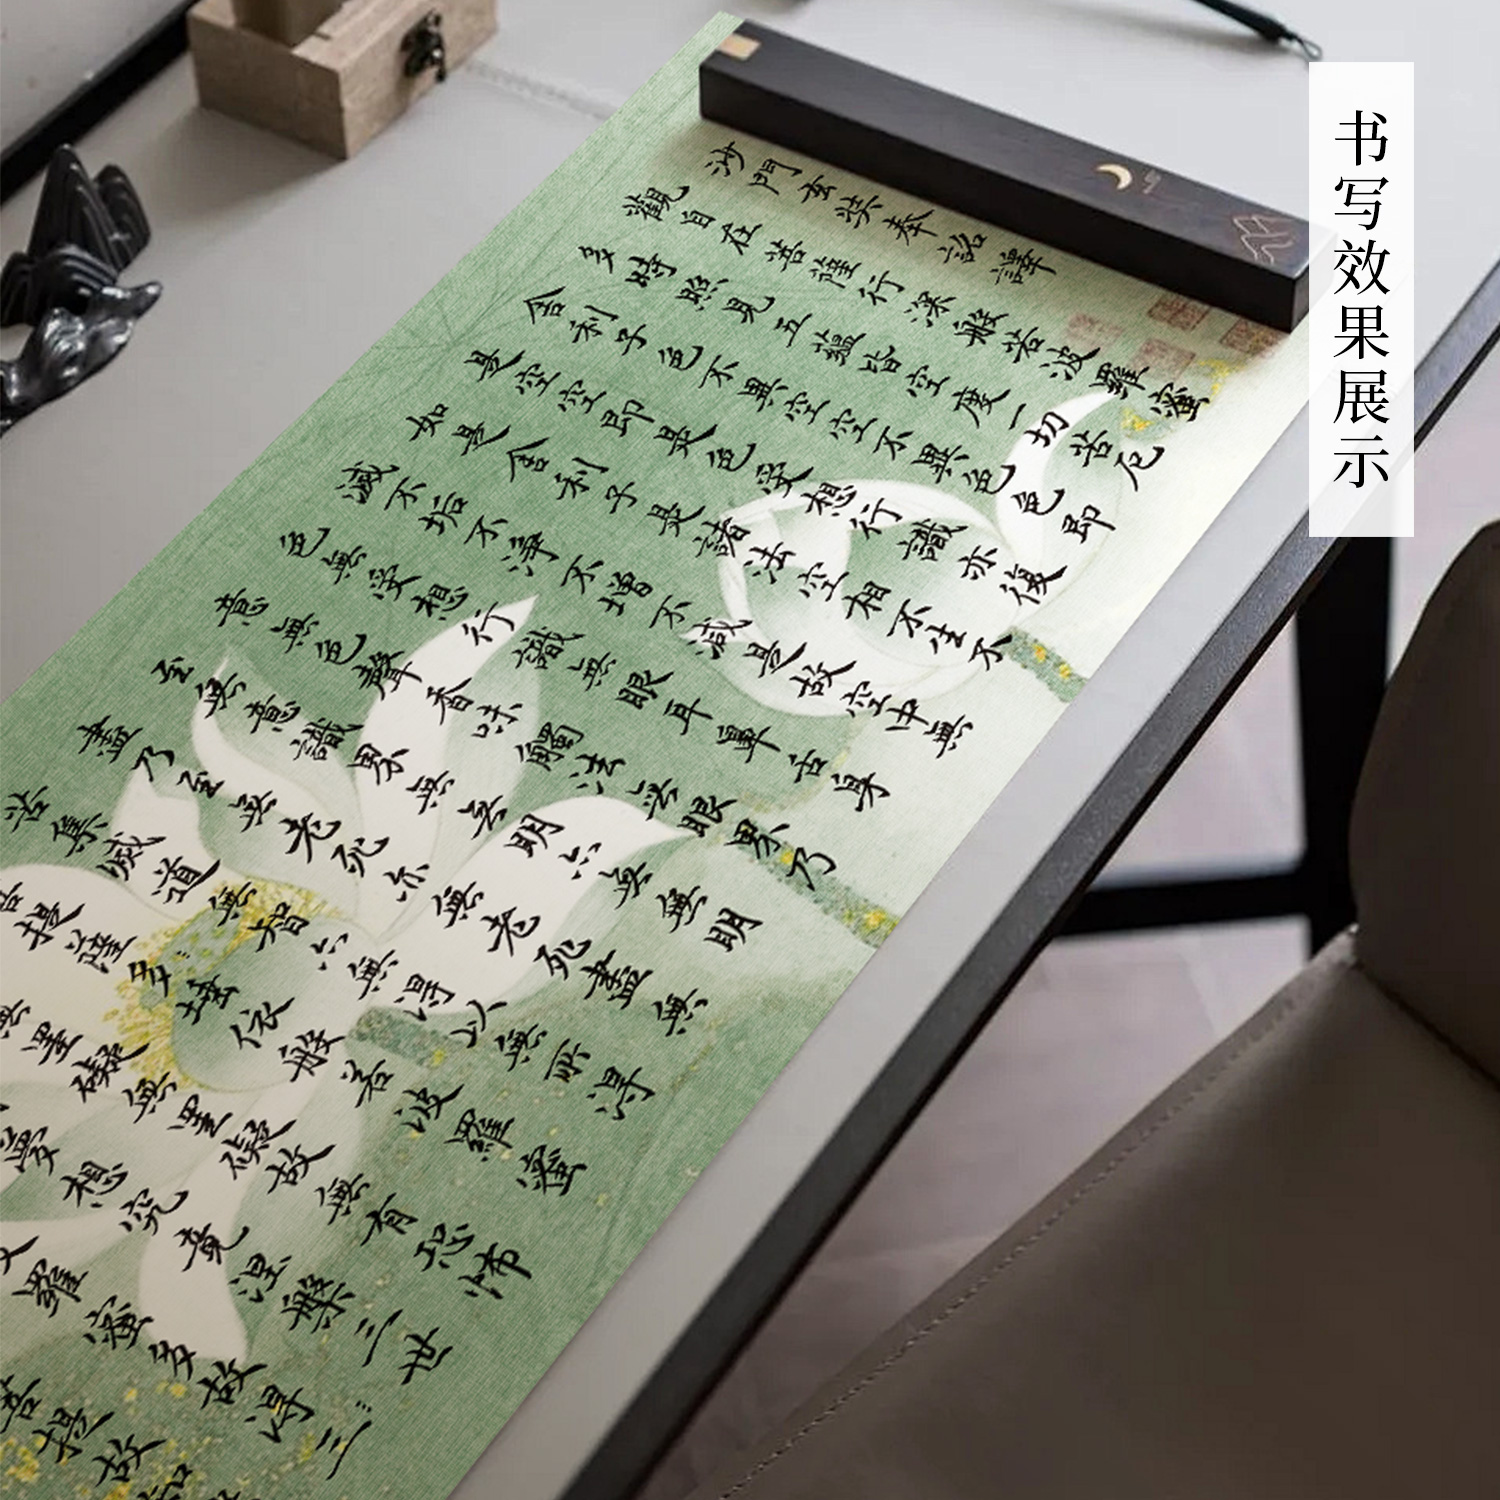 书写效果展示
沙門玄奘奉詔譯
觀自在菩薩行深般若波羅蜜
多時照見五蘊皆空度一切苦厄
舍利子色不異空空不異色色即
是空空即是色受想行識亦復
如是舍利子是諸法空相不生不
滅不垢不淨不增不減是故空中無
色無受想行識無眼耳鼻舌身
意無色聲香味觸法無眼界乃
至無意識界無無明亦無無明
盡乃至無老死亦無老死盡無
苦集滅道無智亦無得以無所得
菩提薩多埵依般若波羅蜜
無罣礙無罣礙故無有恐怖
夢想究竟涅槃三世
羅蜜多故得三
菩提故知